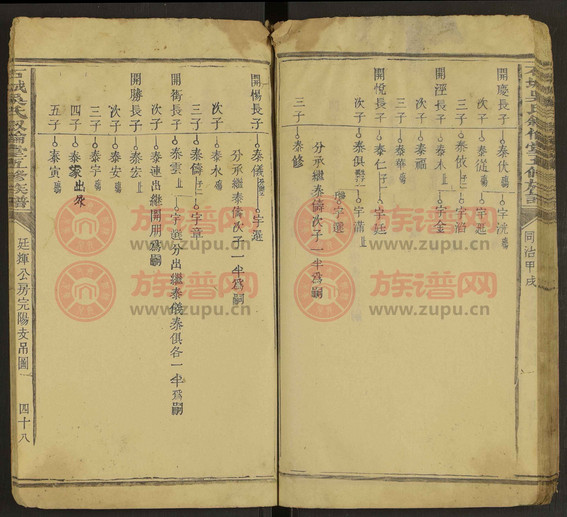 同治甲戌
開慶長子 泰伏 宇流
次子 泰從 宇進
三子 泰攸 宇治
開涇長子 泰木 宇金
次子 泰福
三子 泰華 宇廷
開悅長子 泰仁 宇滿
次子 泰俱 宇選
分承繼泰儔次子一半爲嗣
三子 泰修
開暢長子 泰儀 宇選
分承繼泰儔次子一半爲嗣
次子 泰水
三子 泰儔 宇章
開衛長子 泰雲 宇選分出繼泰儀泰俱各一半爲嗣
次子 泰連出繼開朋爲嗣
開勝長子 泰宏
次子 泰安
三子 泰宇
四子 泰象出家
五子 泰寅
石城吳氏敘倫堂五修族譜
廷輝公房完陽女吊圖
四十八
族谱网
www.zupu.cn
族谱网
www.zupu.cn
族谱网
www.zupu.cn
族谱网
www.zupu.cn